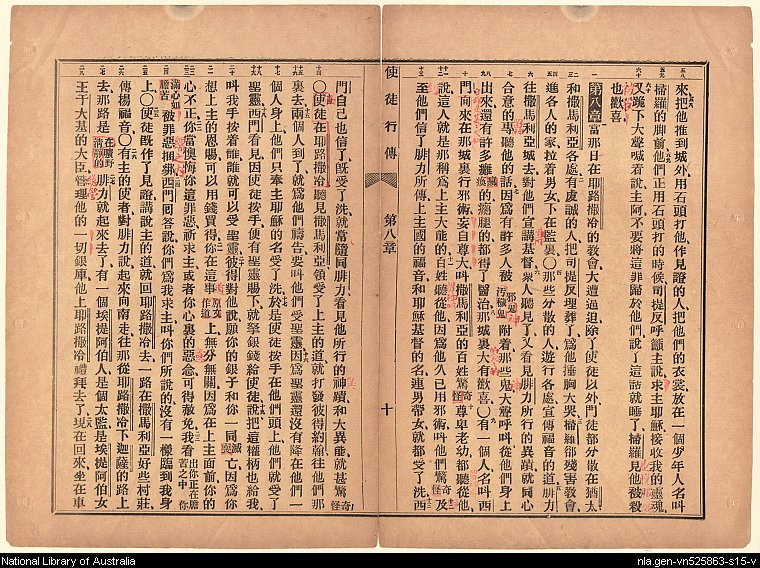 來把他推到城外用石頭打他作見證的人把他們的衣裳放在一個少年人名叫
掃羅的脚前他們正用石頭打的時候司提反呼籲主說求主耶穌接收我的靈魂
又跪下大聲喊着說主阿不要將這罪歸於他們說了這話就睡了掃羅見他被殺
也歡喜
第八章 當那日在耶路撒冷的教會大遭逼迫除了使徒以外門徒都分散在猶太
和撒馬利亞各處有虔誠的人把司提反埋葬了爲他捶胸大哭掃羅卻殘害教會
進各人的家拉着男女下在監裏〇那些分散的人遊行各處宣傳福音的道腓力
往撒馬利亞城去對他們宣講基督衆人聽見了又看見腓力所行的異蹟就同心
合意的專聽他的話因爲有許多人被 附着那些鬼大聲呼叫從他們身上
出來還有許多癱瘓的瘸腿的都得了醫治那城裏大有歡喜〇有一個人名叫西
門向來在那城裏行邪術妄自尊大叫撒馬利亞的百姓驚奇尊卑老幼都聽從他
說這人就是那稱爲上主大能的百姓聽從他因爲他久已用邪術叫他們驚奇及
至他們信了腓力所傳上主國的福音和耶穌基督的名連男帶女就都受了洗西
使徒行傳 第八章 十
門自己也信了既受了洗就常隨同腓力看見他所行的神蹟和大異能就甚驚奇
〇使徒在耶路撒冷聽見撒馬利亞領受了上主的道就打發彼得約翰往他們那
裏去兩個人到了就爲他們禱告要叫他們受聖靈因爲聖靈還沒有降在他們一
個人身上他們只奉主耶穌的名受了洗於是使徒按手在他們頭上他們就受了
聖靈西門看見因使徒按手便有聖靈賜下就拏銀錢給使徒說把這權柄也給我
叫我手按着誰誰就可以受聖靈彼得對他說願你的銀子和你一同滅亡因爲你
想上主的恩賜可以用錢買得你在這事上無分無關因爲在上主面前你的
心不正你當懊悔你這罪惡祈求主或者你心裏的惡念可得赦免我看 你
被罪惡捆綁西門回答說你們爲我求主叫你們所說的沒有一樣臨到我身
上〇使徒既作了見證講說主的道就回耶路撒冷去一路在撒馬利亞好些村莊
傳揚福音〇有主的使者對腓力說起來向南走往那從耶路撒冷下迦薩的路上
去那路是 腓力就起來去了有一個埃提阿伯人是個太監是埃提阿伯女
王干大基的大臣管理他的一切銀庫他上耶路撒冷禮拜去了現在回來坐在車
National Library of Australia
nla.gen-vn525863-s15-v